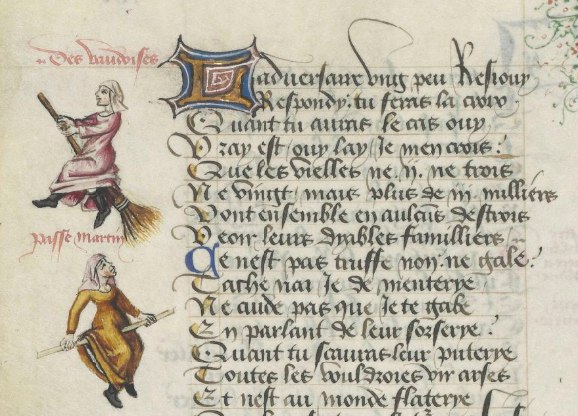 Des vaudoises
passe martin
Ladversaire ung peu Resiouy
Respondy: tu feras la croix
Quant tu auras le cas ouy
Vray est ouy lay Je men crois:
Que les vielles ne .ij. ne trois
Ne vingt mais plus de iij milliers
Vont ensemble en aulcuns destrois
Veoir leurs dyables familliers
Ce nest pas truffe non ne gale:
Tache nai Je de menterye
Ne cuide pas que Je te gabe
En parlant de leur sorserye:
Quant tu scauras leur puterye
Toutes les vouldroies vir arses
Et nest au monde flaterye